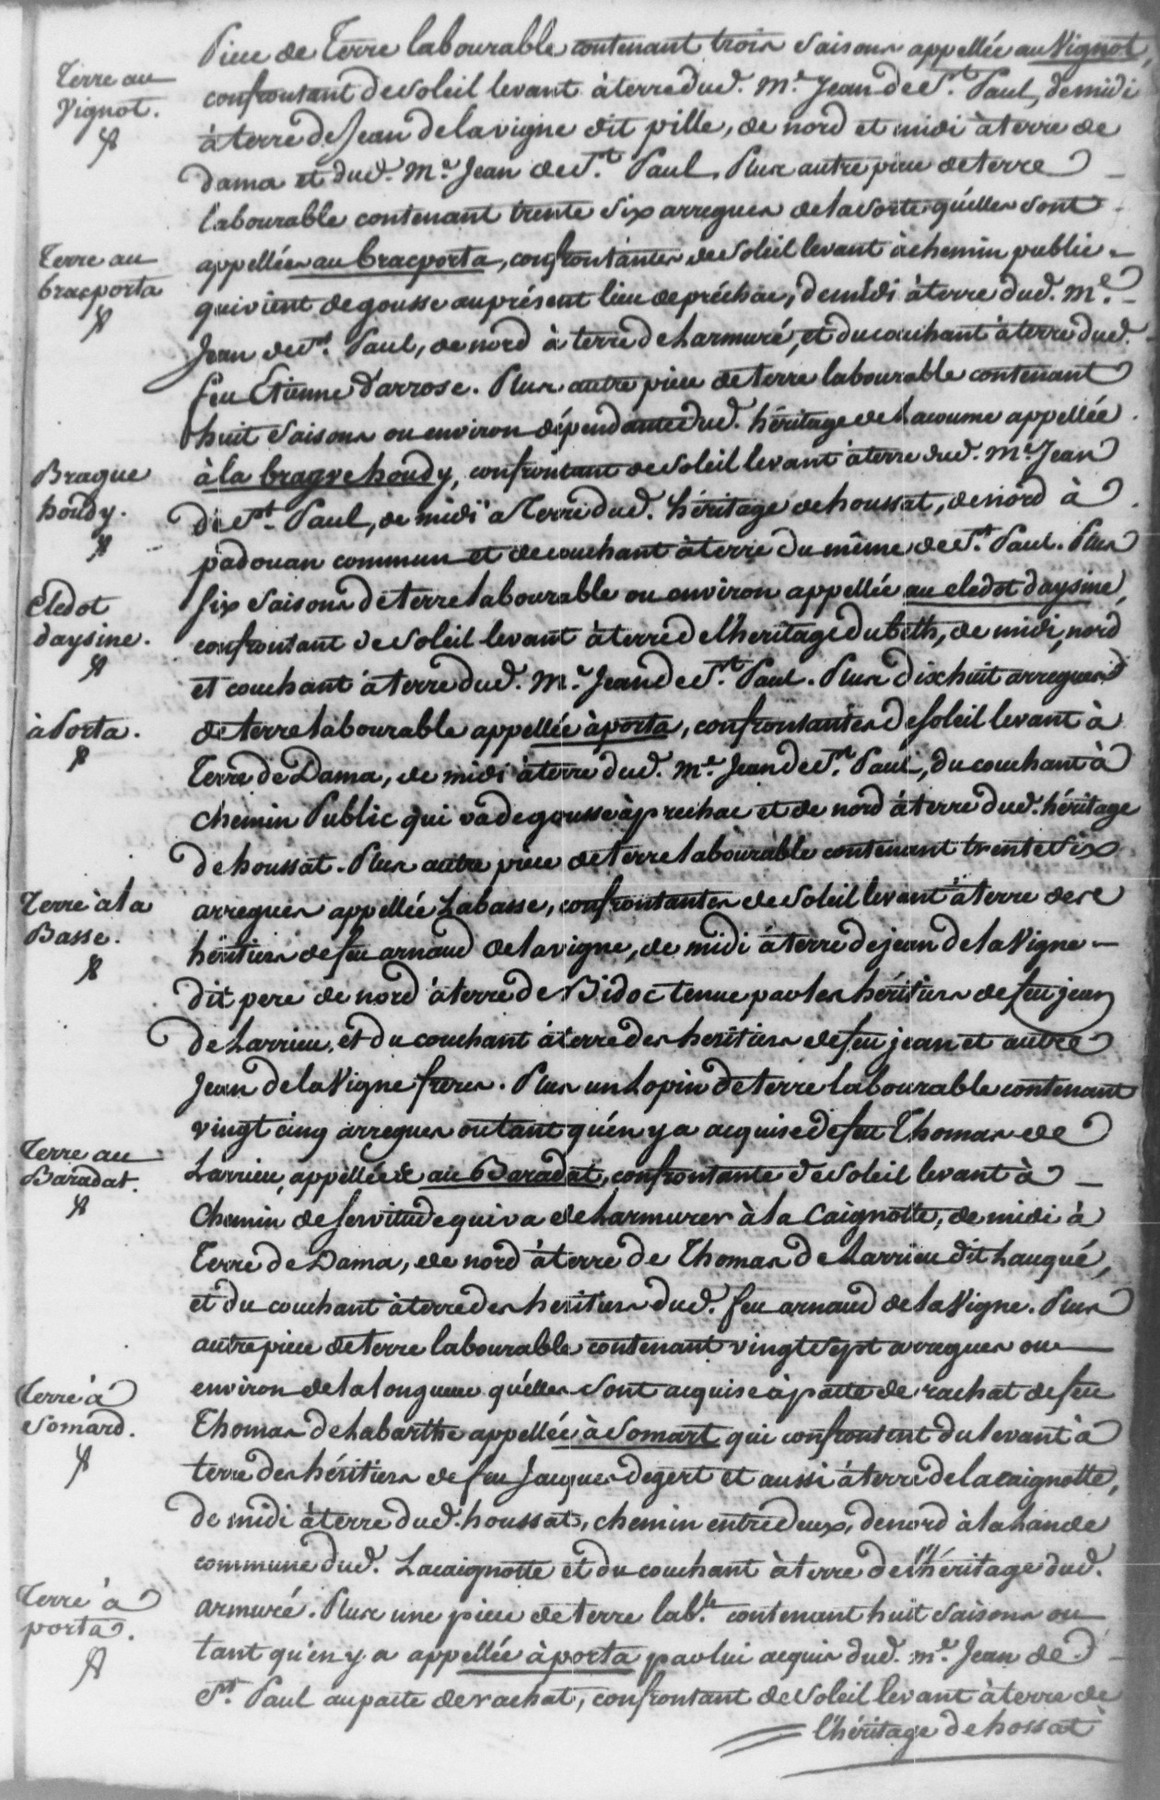 Piece de Terre labourable contenant trois saisons appellée au Vignot,
Terre au
Vignot.
confrontant de soleil levant à terre dud. Me. Jean de St. Paul, de midi
à terre de Jean de lavigne dit pille, de nord et midi à terre de
dama et dud. Me. Jean de St. Paul, Plus autre piece de terre
labourable contenant trente six arregues de la sorte qu'elles sont
Terre au
bracporta
appellées au bracporta, confrontantes de soleil levant à chemin public
qui vient de gousse au présent lieu de préchac, de midi à terre dud. Me.
Jean de St. Paul, de nord à terre de Larmuré, et du couchant à terre dud.
feu Etienne Darrose. Plus autre piece de terre labourable contenant
huit saisons ou environ dépendante dud. héritage de Lacoume appellée
Brague
houdy.
à la brague houdy, confrontant de soleil levant à terre dud. Me. Jean
de St. Paul, de midi a Terre dud. héritage de houssat, de nord à
padouan commun et de couchant à terre du même de St. Paul. Plus
Cledot
daysine.
six saisons de terre labourable ou environ appellée au cledot daysine,
confrontant de soleil levant à terre de l'heritage dubeth, de midi, nord
et couchant à terre dud. Me. Jean de St. Paul. Plus dixhuit arregues
à Porta.
de terre labourable appellée à porta, confrontantes de soleil levant à
Terre de Dama, de midi à terre dud. Me. Jean de St. Paul, du couchant à
chemin Public qui va de gousse à prechac et de nord à terre dud. héritage
de houssat. Plus autre piece de terre labourable contenant trente six
Terre à la
Basse.
arregues appellée Labasse, confrontantes de soleil levant à terre des
héritiers de feu arnaud de lavigne, de midi à terre de jean de la Vigne
dit pere de nord à terre de Bidoc tenue par les héritiers de feu jean
de Larrieu, et du couchant à terre des heritiers de feu jean et autre
Jean de la Vigne freres. Plus un Lopin de terre labourable contenant
vingt cinq arregues ou tant qu'en y a acquise de feu Thomas de
Terre au
Baradat.
Larrieu, appellée au Baradat, confrontante de soleil levant à
Chemin de servitude qui va de Larmurer à la Caignotte, de midi à
Terre de Dama, de nord à terre de Thomas de Larrieu dit Lauqué,
et du couchant à terre des heritiers dud. feu arnaud de la Vigne. Plus
autre piece de terre labourable contenant vingt sept arregues ou
Terre à
Somard.
environ de la longueur qu'elles sont acquise à pacte de rachat de feu
Thomas de Labarthe appellée à Somart qui confrontent du levant à
terre des héritiers de feu Jacques degert et aussi à terre de lacaignotte,
de midi à terre dud. houssat, chemin entre deux, de nord à la Lande
commune dud. Lacaignotte et du couchant à terre de l'héritage dud.
Terre à
porta.
armuré. Plus une piece de terre lab.le contenant huit saisons ou
tant qu'en y a appellée à porta par lui acquis dud. Me. Jean de
St. Paul au pacte de rachat, confrontant de soleil levant à terre de
l'héritage de hossat